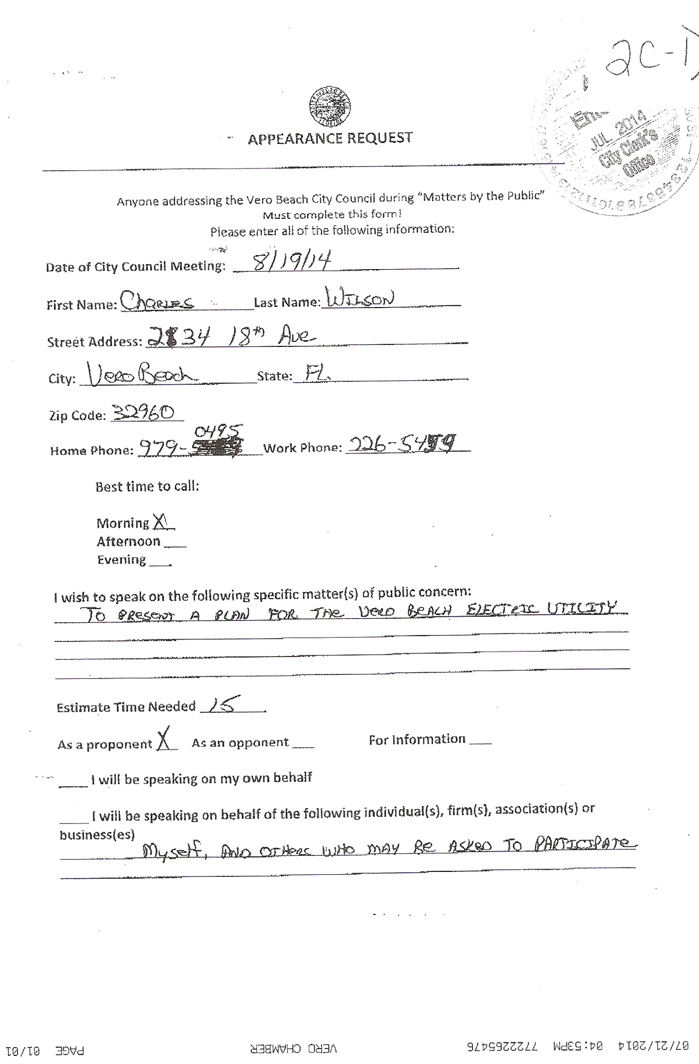 2C-1)
JUL 2014
City Clerk's
Office
APPEARANCE REQUEST
Anyone addressing the Vero Beach City Council during "Matters by the Public"
Must complete this form!
Please enter all of the following information:
Date of City Council Meeting: 8/19/14
First Name: Charles Last Name: Wilson
Street Address: 2834 18th Ave
City: Vero Beach State: FL.
Zip Code: 32960
0495
Home Phone: 979- Work Phone: 226-5459
Best time to call:
Morning X
Afternoon ___
Evening ___
I wish to speak on the following specific matter(s) of public concern:
TO PRESENT A PLAN FOR THE VERO BEACH ELECTRIC UTILITY
Estimate Time Needed 15
As a proponent X As an opponent ___ For Information ___
____ I will be speaking on my own behalf
____ I will be speaking on behalf of the following individual(s), firm(s), association(s) or
business(es)
Myself, AND OTHERS WHO MAY BE ASKED TO PARTICIPATE
07/21/2014 04:53PM 7722265476 VERO CHAMBER PAGE 01/01